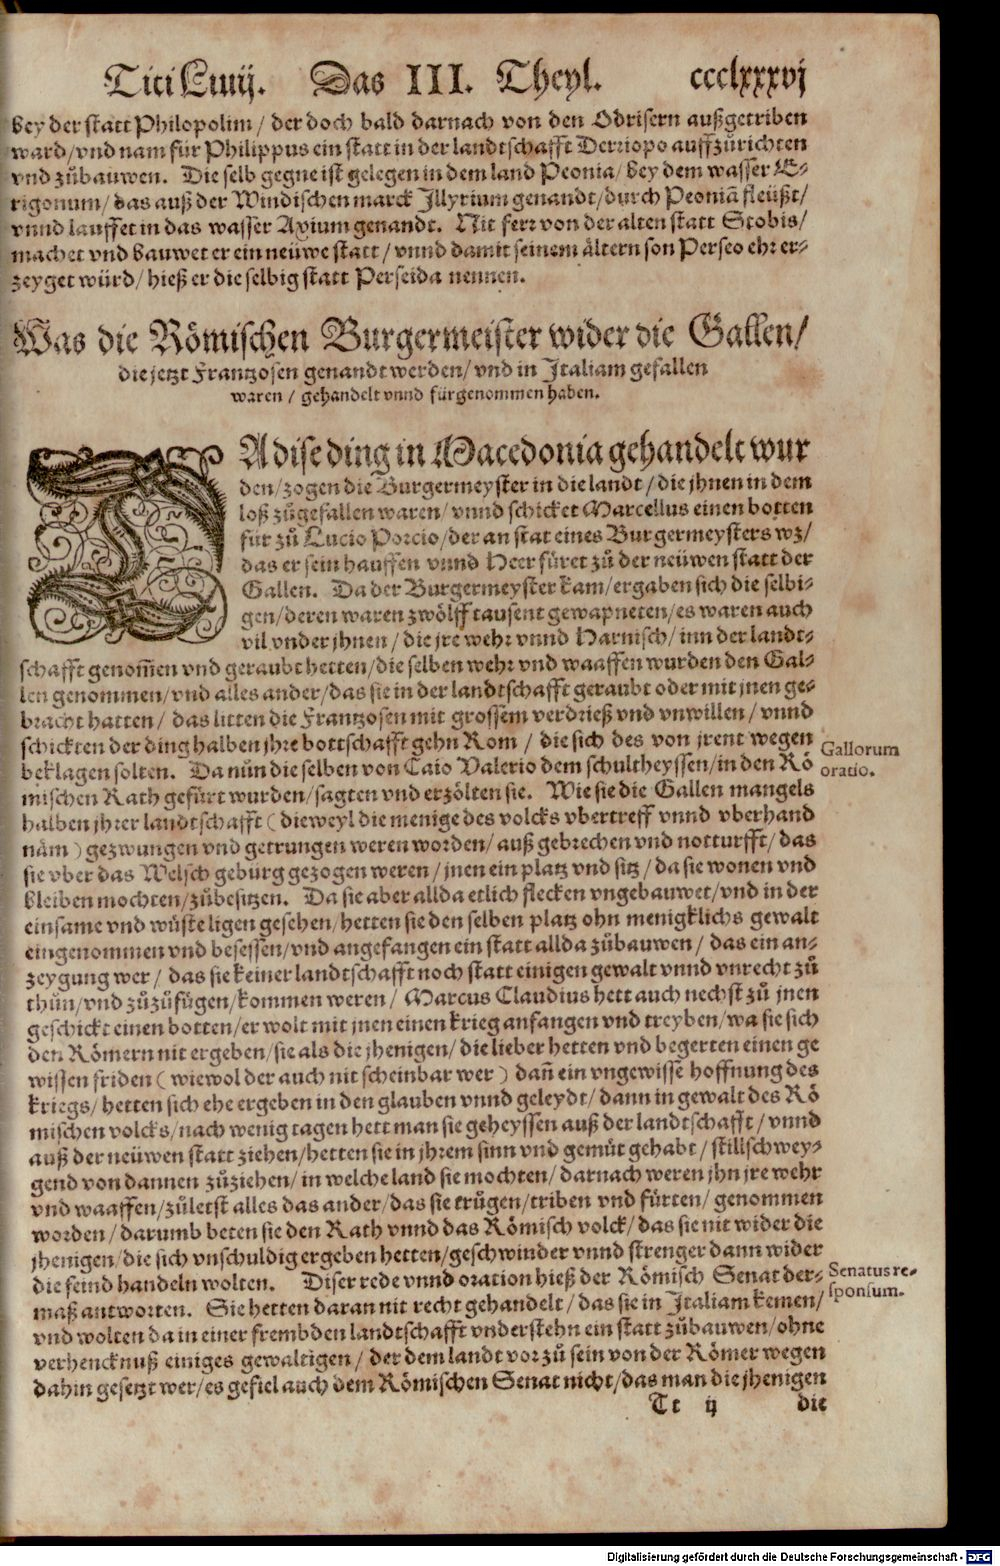 Titi Liuij. Das III. Theyl. ccclxxxvj
bey der statt Philopolim / der doch bald darnach von den Odrisern außgetriben
ward / vnd nam für Philippus ein statt in der landtschafft Derriopo auffzůrichten
vnd zůbauwen. Die selb gegne ist gelegen in dem land Peonia / bey dem wasser E-
rigonum / das auß der Windischen marck Illyrium genandt / durch Peoniā fleüßt /
vnnd lauffet in das wasser Axium genandt. Nit ferr von der alten statt Stobis /
machet vnd bauwet er ein neüwe statt / vnnd damit seinem ältern son Perseo ehr er-
zeyget würd / hieß er die selbig statt Perseida nennen.
Was die Römischen Burgermeister wider die Gallen /
die jetzt Frantzosen genandt werden / vnd in Italiam gefallen
waren / gehandelt vnnd fürgenommen haben.
DA dise ding in Macedonia gehandelt wur
den / zogen die Burgermeyster in die landt / die jhnen in dem
loß zůgefallen waren / vnnd schicket Marcellus einen botten
für zů Lucio Porcio / der an stat eines Burgermeysters wz /
das er sein hauffen vnnd Heer füret zů der neüwen statt der
Gallen. Da der Burgermeyster kam / ergaben sich die selbi-
gen / deren waren zwölff tausent gewapneten / es waren auch
vil vnder jhnen / die jre wehr vnnd Harnisch / inn der landt-
schafft genom̄en vnd geraubt hetten / die selben wehr vnd waaffen wurden den Gal-
len genommen / vnd alles ander / das sie in der landtschafft geraubt oder mit jnen ge-
bracht hatten / das litten die Frantzosen mit grossem verdrieß vnd vnwillen / vnnd
schickten der ding halben jhre bottschafft gehn Rom / die sich des von jrent wegen
beklagen solten. Da nůn die selben von Caio Valerio dem schultheyssen / in den Rö
Gallorum
oratio.
mischen Rath gefürt wurden / sagten vnd erzölten sie. Wie sie die Gallen mangels
halben jhrer landtschafft ( dieweyl die menige des volcks vbertreff vnnd vberhand
näm ) gezwungen vnd getrungen weren worden / auß gebrechen vnd notturfft / das
sie vber das Welsch gebürg gezogen weren / jnen ein platz vnd sitz / da sie wonen vnd
bleiben mochten / zůbesitzen. Da sie aber allda etlich flecken vngebauwet / vnd in der
einsame vnd wüste ligen gesehen / hetten sie den selben platz ohn menigklichs gewalt
eingenommen vnd besessen / vnd angefangen ein statt allda zůbauwen / das ein an-
zeygung wer / das sie keiner landtschafft noch statt einigen gewalt vnnd vnrecht zů
thůn / vnd zůzůfügen / kommen weren / Marcus Claudius hett auch nechst zů jnen
geschickt einen botten / er wolt mit jnen einen krieg anfangen vnd treyben / wa sie sich
den Römern nit ergeben / sie als die jhenigen / die lieber hetten vnd begerten einen ge
wissen friden ( wiewol der auch nit scheinbar wer ) dañ ein vngewisse hoffnung des
kriegs / hetten sich ehe ergeben in den glauben vnnd geleydt / dann in gewalt des Rö
mischen volcks / nach wenig tagen hett man sie geheyssen auß der landtschafft / vnnd
auß der neüwen statt ziehen / hetten sie in jhrem sinn vnd gemüt gehabt / stillschwey-
gend von dannen zůziehen / in welche land sie mochten / darnach weren jhn jre wehr
vnd waaffen / zůletst alles das ander / das sie trügen / triben vnd fürten / genommen
worden / darumb beten sie den Rath vnnd das Römisch volck / das sie nit wider die
jhenigen / die sich vnschuldig ergeben hetten / geschwinder vnnd strenger dann wider
die feind handeln wolten. Diser rede vnnd oration hieß der Römisch Senat der-
Senatus re-
sponsum.
maß antworten. Sie hetten daran nit recht gehandelt / das sie in Italiam kemen /
vnd wolten da in einer frembden landtschafft vnderstehn ein statt zůbauwen / ohne
verhencknuß einiges gewaltigen / der dem landt vor zů sein von der Römer wegen
dahin gesetzt wer / es gefiel auch dem Römischen Senat nicht / das man die jhenigen
Tt ij die
Digitalisierung gefördert durch die Deutsche Forschungsgemeinschaft - DFG